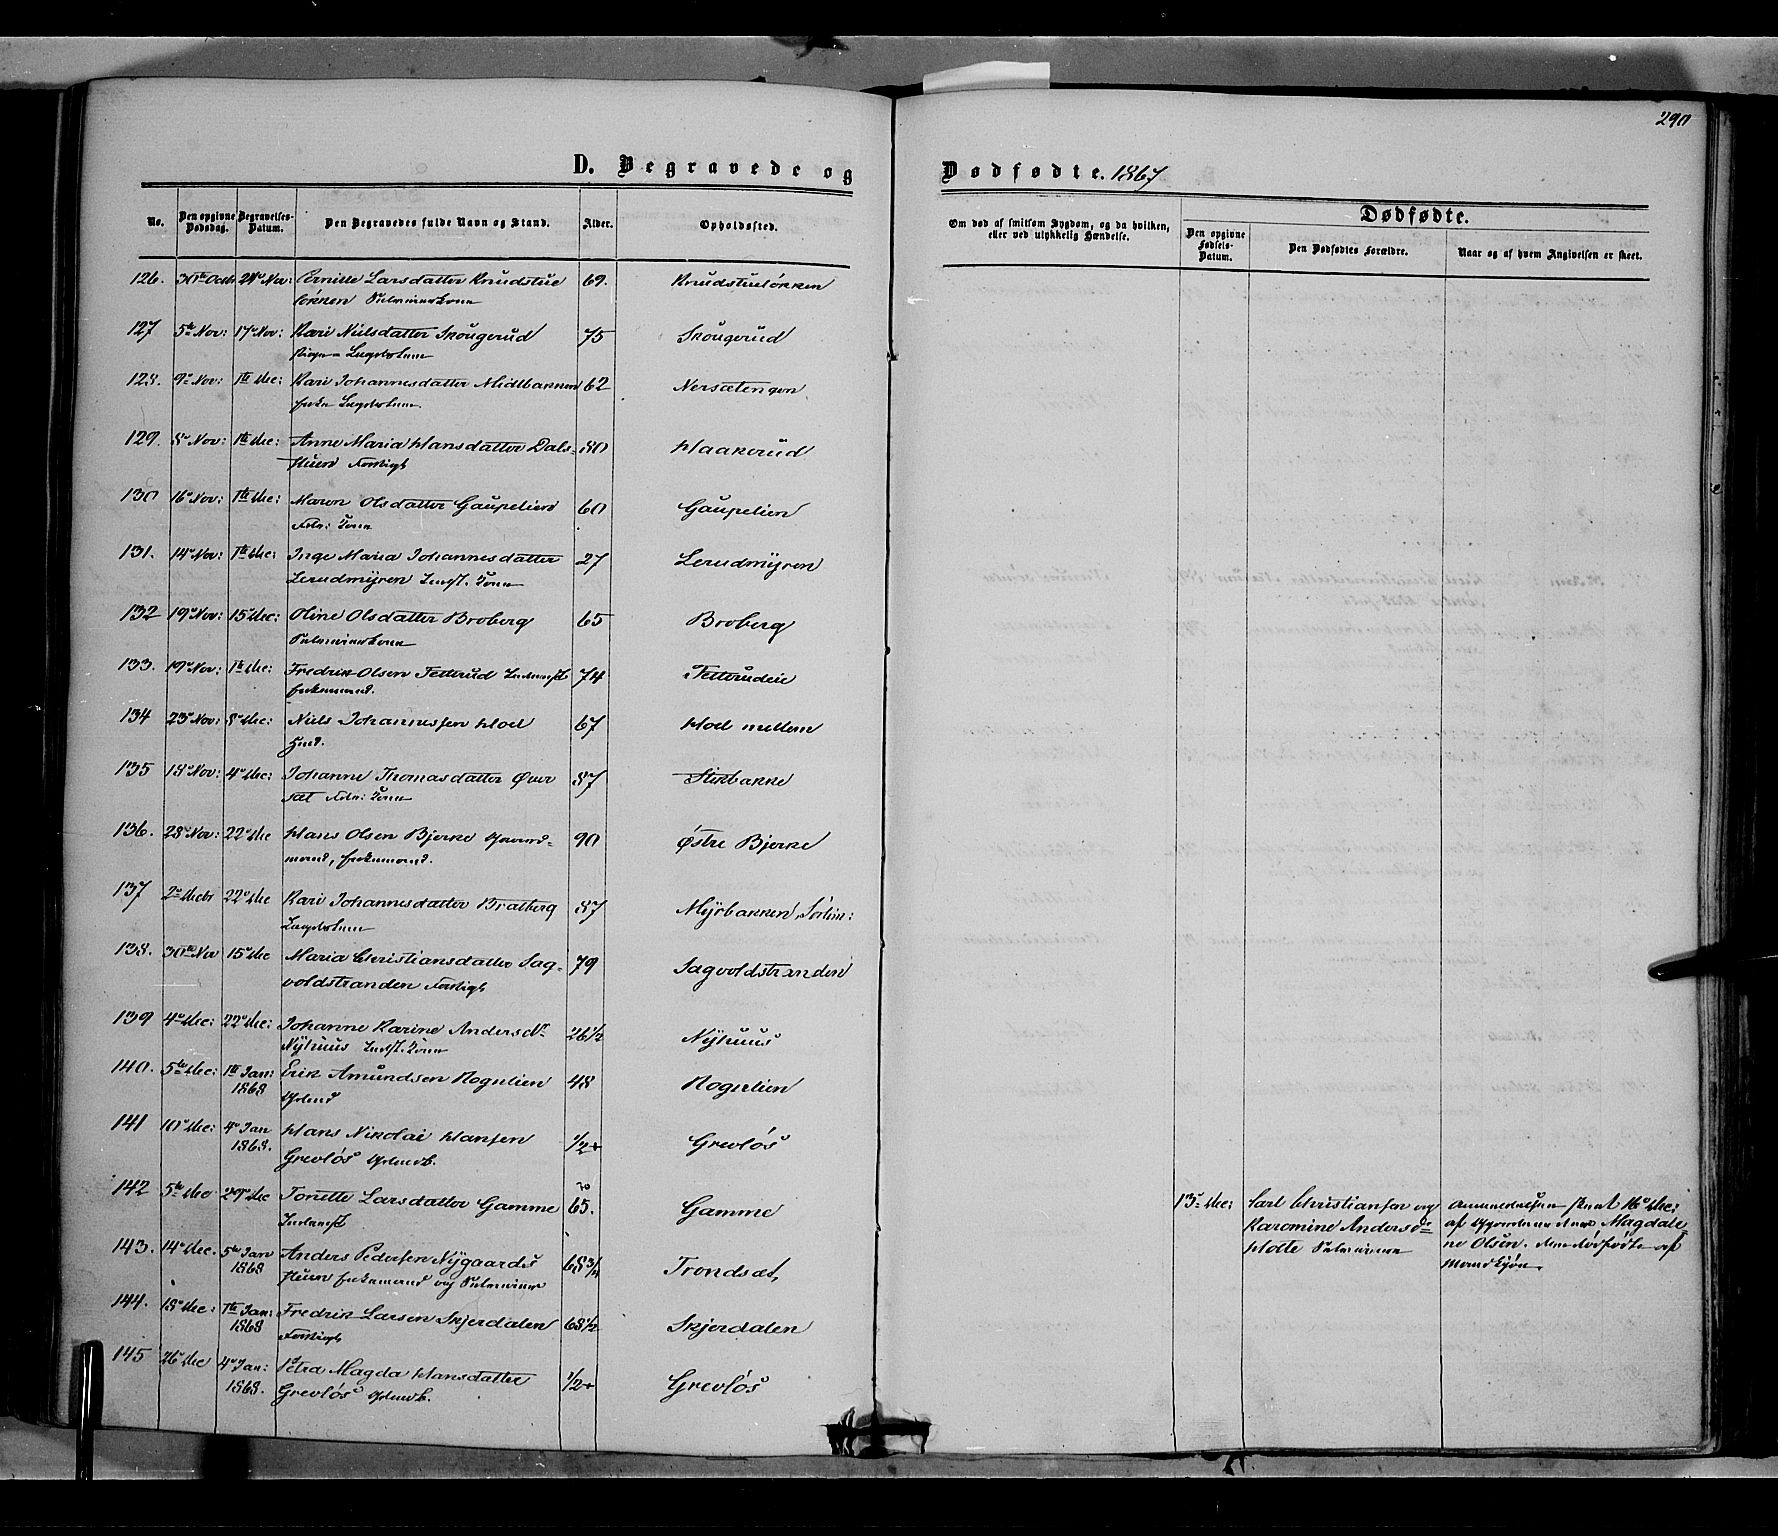 290
D. Begravede og Dødfødte. 1867
No. Den opgivne Dødsdag. Begravelses-Datum. Den Begravedes fulde Navn og Stand. Alder. Opholdssted.
Om død af smitsom Sygdom, og da hvilken, eller ved ulykkelig Hændelse.
Dødfødte.
Den opgivne Fødsels-Datum. Den Dødfødtes Forældre. Naar og af hvem Angivelsen er skeet.
126. 30te Octb 24de Nov: Pernille Larsdatter Knudstue 69. Knudstueløkken
løkken
127 5te Nov: 17de Nov: Kari Nielsdatter Skougerud 75 Skougerud
Lægdslem
128. 9de Nov: 1te Dec: Kari Johannesdatter Midtbakken 62 Nersætengen
Enke Lægdslem
129. 8de Nov: 1te Dec: Anne Maria Hansdatter Dals- 80 Haakerud
stuen Forsørgt
130 16de Nov: 1te Dec: Maren Olsdatter Gaupelien 60 Gaupelien
131. 14de Nov: 1te Dec: Inge Maria Johannesdatter 27 Lerudmyren
Lerudmyren Indst. Kone
132 19de Nov: 15de Dec: Oline Olsdatter Broberg 65 Broberg
Selveierkone
133. 19de Nov: 1te Dec: Fredrik Olsen Tetterud 74 Tetterudeie
Enkemand.
134 23de Nov: 8de Dec: Niels Johannessen Hoel 67 Hoel mellem
135 18de Nov: 4de Dec: Johanne Thomasdatter Øver 87 Stikbakke
sæt Kone
136. 28de Nov: 22de Dec Hans Olsen Bjerke Gaard- 90 Østre Bjerke
mand, Enkemand.
137 2de Decbr 22de Dec Kari Johannesdatter Bratberg 87 Myrbakken,
Lægdslem
138. 30te Nov 15de Dec Maria Christiansdatter Sag- 79 Sagvoldstranden
voldstranden Forsørgt
139 4de Dec: 22de Dec: Johanne Karine Andersdr 26 1/2 Nyhuus
Nyhuus Indst. Kone
140. 5te Dec: 1te Jan: Erik Amundsen Rognlien 48 Rognlien
1868
141 10de Dec: 4de Jan Hans Nikolai Hansen 1/2 Grevløs
1868. Grevløs
142 5te Dec 29de Dec Tonette Larsdatter Gamme 65. Gamme
13de Dec: Carl Christiansen og Anmeldelsen skeet 16de Dec:
Karomine Andersdr af Magdale
Hotte Selveiere ne Olsen. Den dødfødte af
Mandkjøn.
143. 14de Dec. 5te Jan Anders Pedersen Nygaards 68 3/4 Trondsæt,
1868 stuen Enkemand og Selveier
144. 18de Dec: 1te Jan: Fredrik Larsen Skjerdalen 68 1/2 Skjerdalen
1868 Forsørgt
145 26de Dec 4de Jan: Petra Magda Hansdatter 1/2 Grevløs
1868. Grevløs